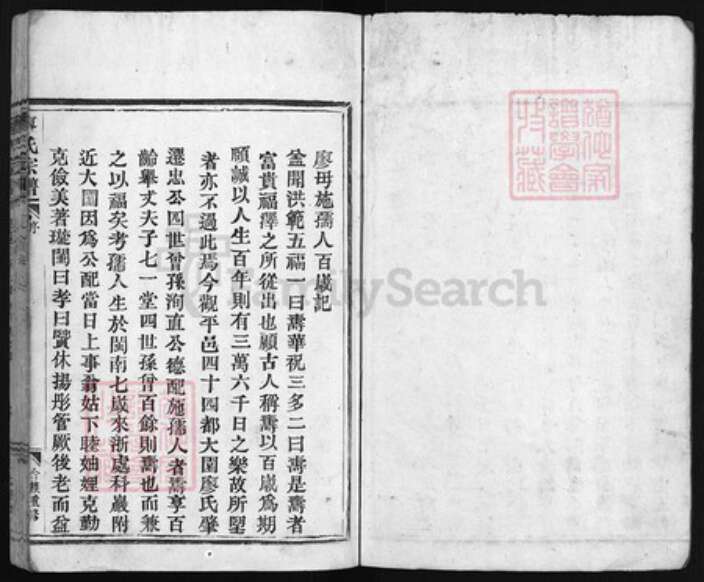 廖母施孺人百歲記
盖聞洪範五福一曰壽華祝三多二曰壽是壽者
富貴福澤之所從出也顧古人稱壽以百歲爲期
願誠以人生百年則有三萬六千日之樂故所望
者亦不過此焉今觀平邑四十四都大園廖氏肇
遷忠公四世曾孫洵直公德配施孺人者壽享百
齡舉丈夫子七一堂四世孫曾百餘則壽也而兼
之以福矣考孺人生於閩南七歲來浙處科巖附
近大園因爲公配當日上事翁姑下睦妯娌克勤
克儉美著璇閨曰孝曰賢休揚彤管厥後老而益
氏宗譜
序
猶他家
譜學會
收藏
FamilySearch